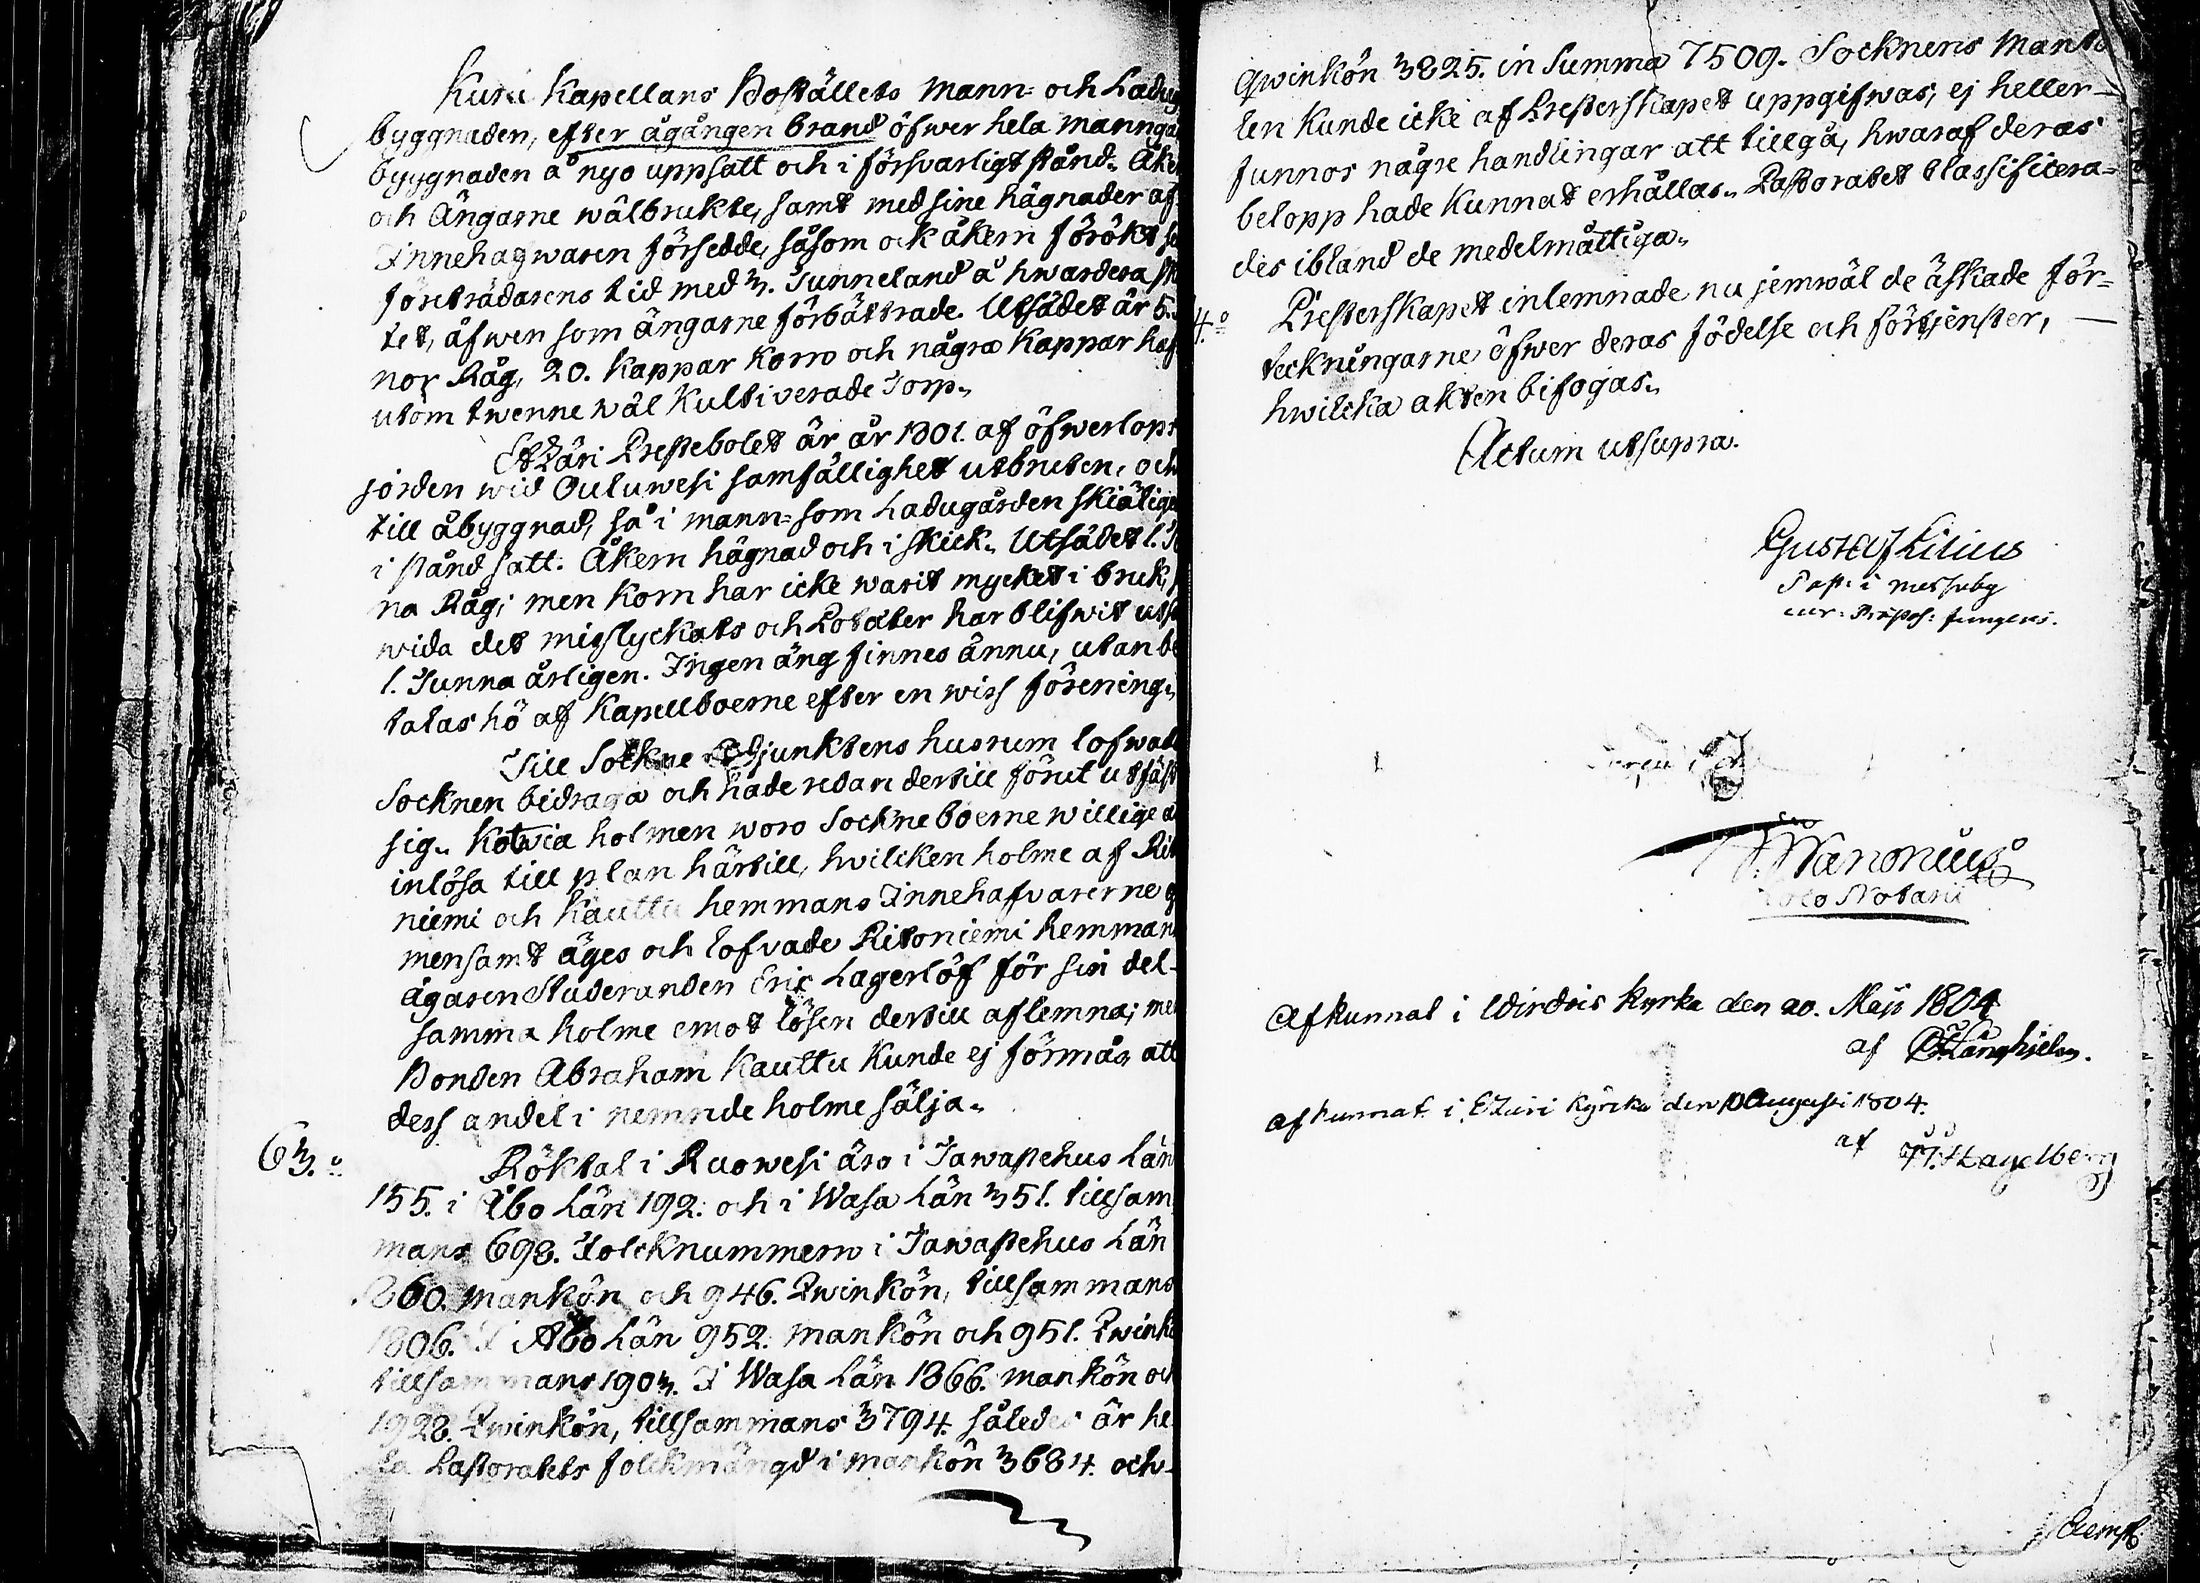 Kuru Kapellans Bostället̃s Mann- och Ladug
byggnaden, efter ågången brand öfwer hela manngå
byggnaden å nyo uppsatt och i försvarligt stånd. Åke
och Ängarne wälbrukte, samt med sine hägnader af
Innehagwaren försedde, såsom ock åkern förökt se
företrädarens tid med 3. Tunneland å hwardera sk
tet, äfwen som ängarne förbättrade. Utsädet är 5.
nor Råg, 20. Kappar Korn och några Kappar haf
utom twenne wäl Kultiverade Torp.
Etzäri Prestebolet är år 1801. af öfwerlops
jorden wid Ouluwesi samfällighet utbruten, och
till åbyggnad, så i mann- som Ladugården skiälige
i stånd satt. Åkern hägnad och i skick. Utsädet 1. Tu
na Råg; men Korn har icke warit mycket i bruk,
wida det misslyckats och Potäter har blifwit utså
1. Tunna årligen. Ingen äng finnes ännu, utan be
talas hö af Kapellboerne efter en wiss förening.
Till Sockne Adjunktens husrum lofwade
Socknen bidraga och hade redan dertill förut utfäst
sig. Kotvia holmen woro Sockneboerne willige a
inlösa till plan härtill, hvilcken holme af Rit
niemi och Kauttu hemmans Innehafvarerne g
mensamt äges och lofvade Ritoniemi hemman
ägaren Studeranden Eric Lagerlöf för sin del
samma holme emot lösen dertill aflemna; me
Bonden Abraham Kauttu Kunde ej förmås att
dess andel i nemnde holme sälja.
63.o Röktal i Ruowesi äro i Tawastehus Län
155. i Åbo Län 192. och i Wasa Län 351. tillsam
mans 698. Folcknummern i Tawastehus Län
860. mankön och 946. Qwinkön, tillsammans
1806. I Åbo Län 952. mankön och 951. Qwinkö
tillsammans 1903. I Wasa Län 1866. mankön och
1928. Qwinkön, tillsammans 3794. således är he
la Pastoratets folckmängd i mankön 3684. och
Qwinkön 3825. in Summa 7509. Socknens Manta
len Kunde icke af Presterskapet uppgifwas, ej heller
funnos någre handlingar att tillgå, hwaraf deras
belopp hade Kunnat erhållas. Pastoratet Classificera-
des ibland de medelmåttiga.
4.o Presterskapet inlemnade nu jemwäl de äskade för-
teckningarne öfwer deras födelse och förtjenster,
hwilcka akten bifogas.
Actum utsupra.
Gustaf Lilius
Past: i Messuby
Wanonius
Loco Notarii
Afkunnat i Wirdois Kyrka den 20. Maji 1804
af Långhjelm.
afkunnat i Etzäri Kyrka den 10 Augusti 1804.
af Hagelberg